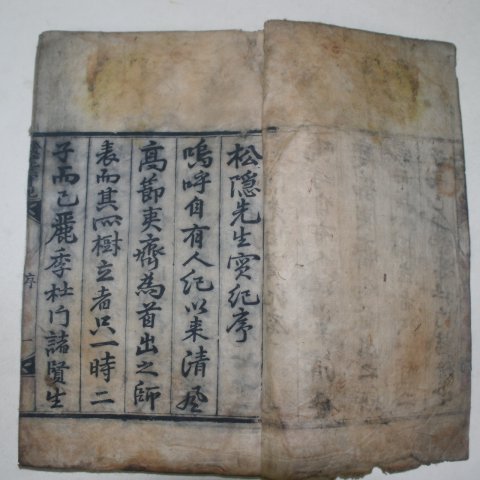 松隠先生實紀序
嗚呼自有人紀以来清風
高節夷齊為首出之師
表而其所樹立者只一時二
子而已麗季杜門諸賢生
序